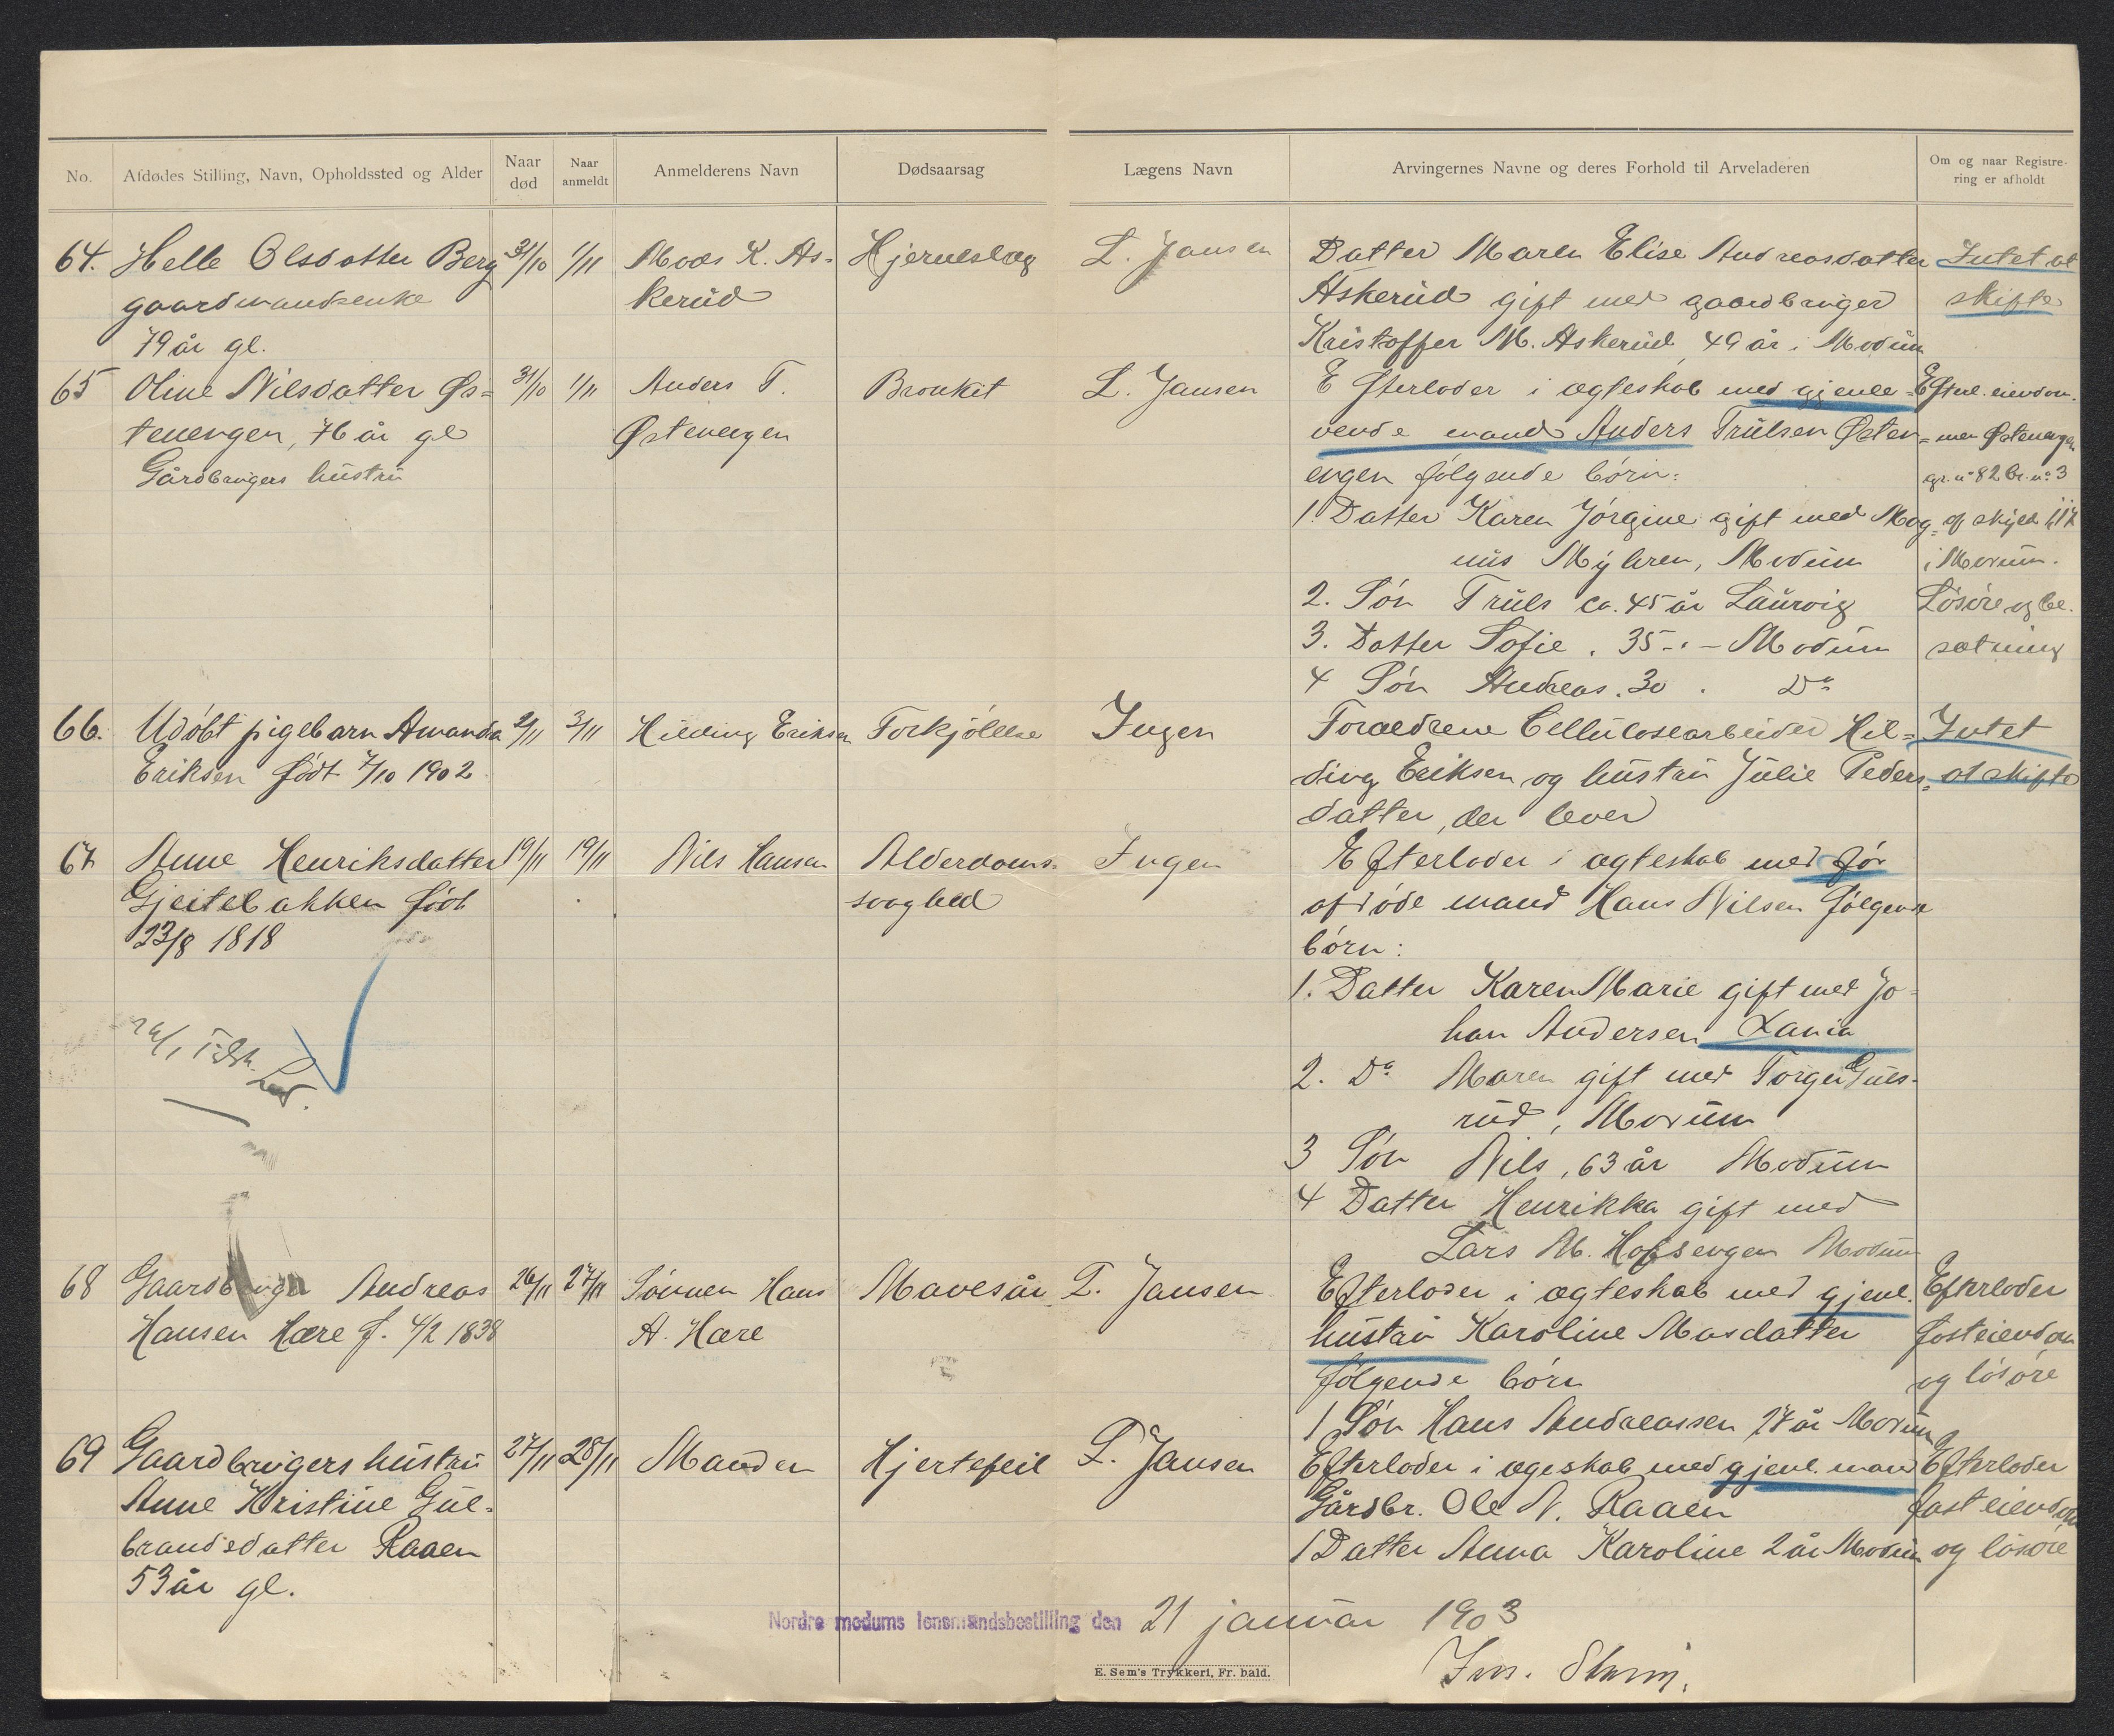 No.
Afdødes Stilling, Navn, Opholdssted og Alder
Naar død
Naar anmeldt
Anmelderens Navn
Dødsaarsag
Lægens Navn
Arvingernes Navne og deres Forhold til Arveladeren
Om og naar Registrering er afholdt
64. Helle Olsdatter Berg
gaardmandsenke
79 år gl.
31/10
1/11
Moos K. As-
kerud
Hjerneslag
L. Jansen
Datter Maren Elise Andreasdatter
Askerud gift med gaardbruger
Kristoffer M. Askerud, 49 år. Modum
Intet at
skifte
65 Oline Nilsdatter Øs=
tenengen, 76 år gl
Gårdbrugers hustru
31/10
1/11
Anders T.
Østenengen
Bronkit
L. Jansen
Efterlader i ægteskab med gjenle=
vende mand Anders Trulsen Østen=
engen følgende børn:
1. Datter Karen Jørgine gift med Mag=
nus Myhren, Modum
2. Søn Truls ca. 45 år Laurvig
3. Datter Sofie . 35 - . - Modum
4 Søn Andreas . 30 . Do
Efterl. eiendom-
men Østenengen
gr. no 82 br. no 3
af skyld
i Modum.
Løsøre og be-
sætning
66. Udøbt pigebarn Amanda
Eriksen født 7/10 1902
2/11
3/11
Hilding Eriksen
Forkjølelse
Ingen
Forældrene Cellulosearbeider Hil=
ding Eriksen og hustru Julie Peders=
datter, der lever
Intet
at skifte
67 Anne Henriksdatter
Gjeitebakken født
23/8 1818
19/11
19/11
Nils Hansen
Alderdoms-
svaghed
Ingen
Efterlader i ægteskab med før
afdøde mand Hans Nilsen følgende
børn:
1. Datter Karen Marie gift med Jo=
han Andersen Xania
2. Do Maren gift med Torger Guls-
rud, Modum
3 Søn Nils, 63 år Modum
4 Datter Henrikka gift med
Lars M. Hofsengen Modum
68 Gaardbruger Andreas
Hansen Hære f. 4/2 1838
26/11
27/11
Sønnen Hans
A. Hære
Mavesår
L. Jansen
Efterlader i ægteskab med gjenl.
hustru Karoline Masdatter
følgende børn
1 Søn Hans Andreassen 27 år Modum
Efterlader
fast eiendom
og løsøre
69 Gaardbrugers hustru
Anne Kristine Gul-
brandsdatter Raaen
53 år gl.
27/11
28/11
Manden
Hjertefeil
L. Jansen
Efterlader i ægeskab med gjenl. mand
Gårdbr. Ole N. Raaen
1 Datter Anna Karoline 2 år Modum
Efterlader
fast eiendom
og løsøre
Nordre modums lensmandsbestilling den 21 januar 1903
E. Sem's Trykkeri, Fr. hald.